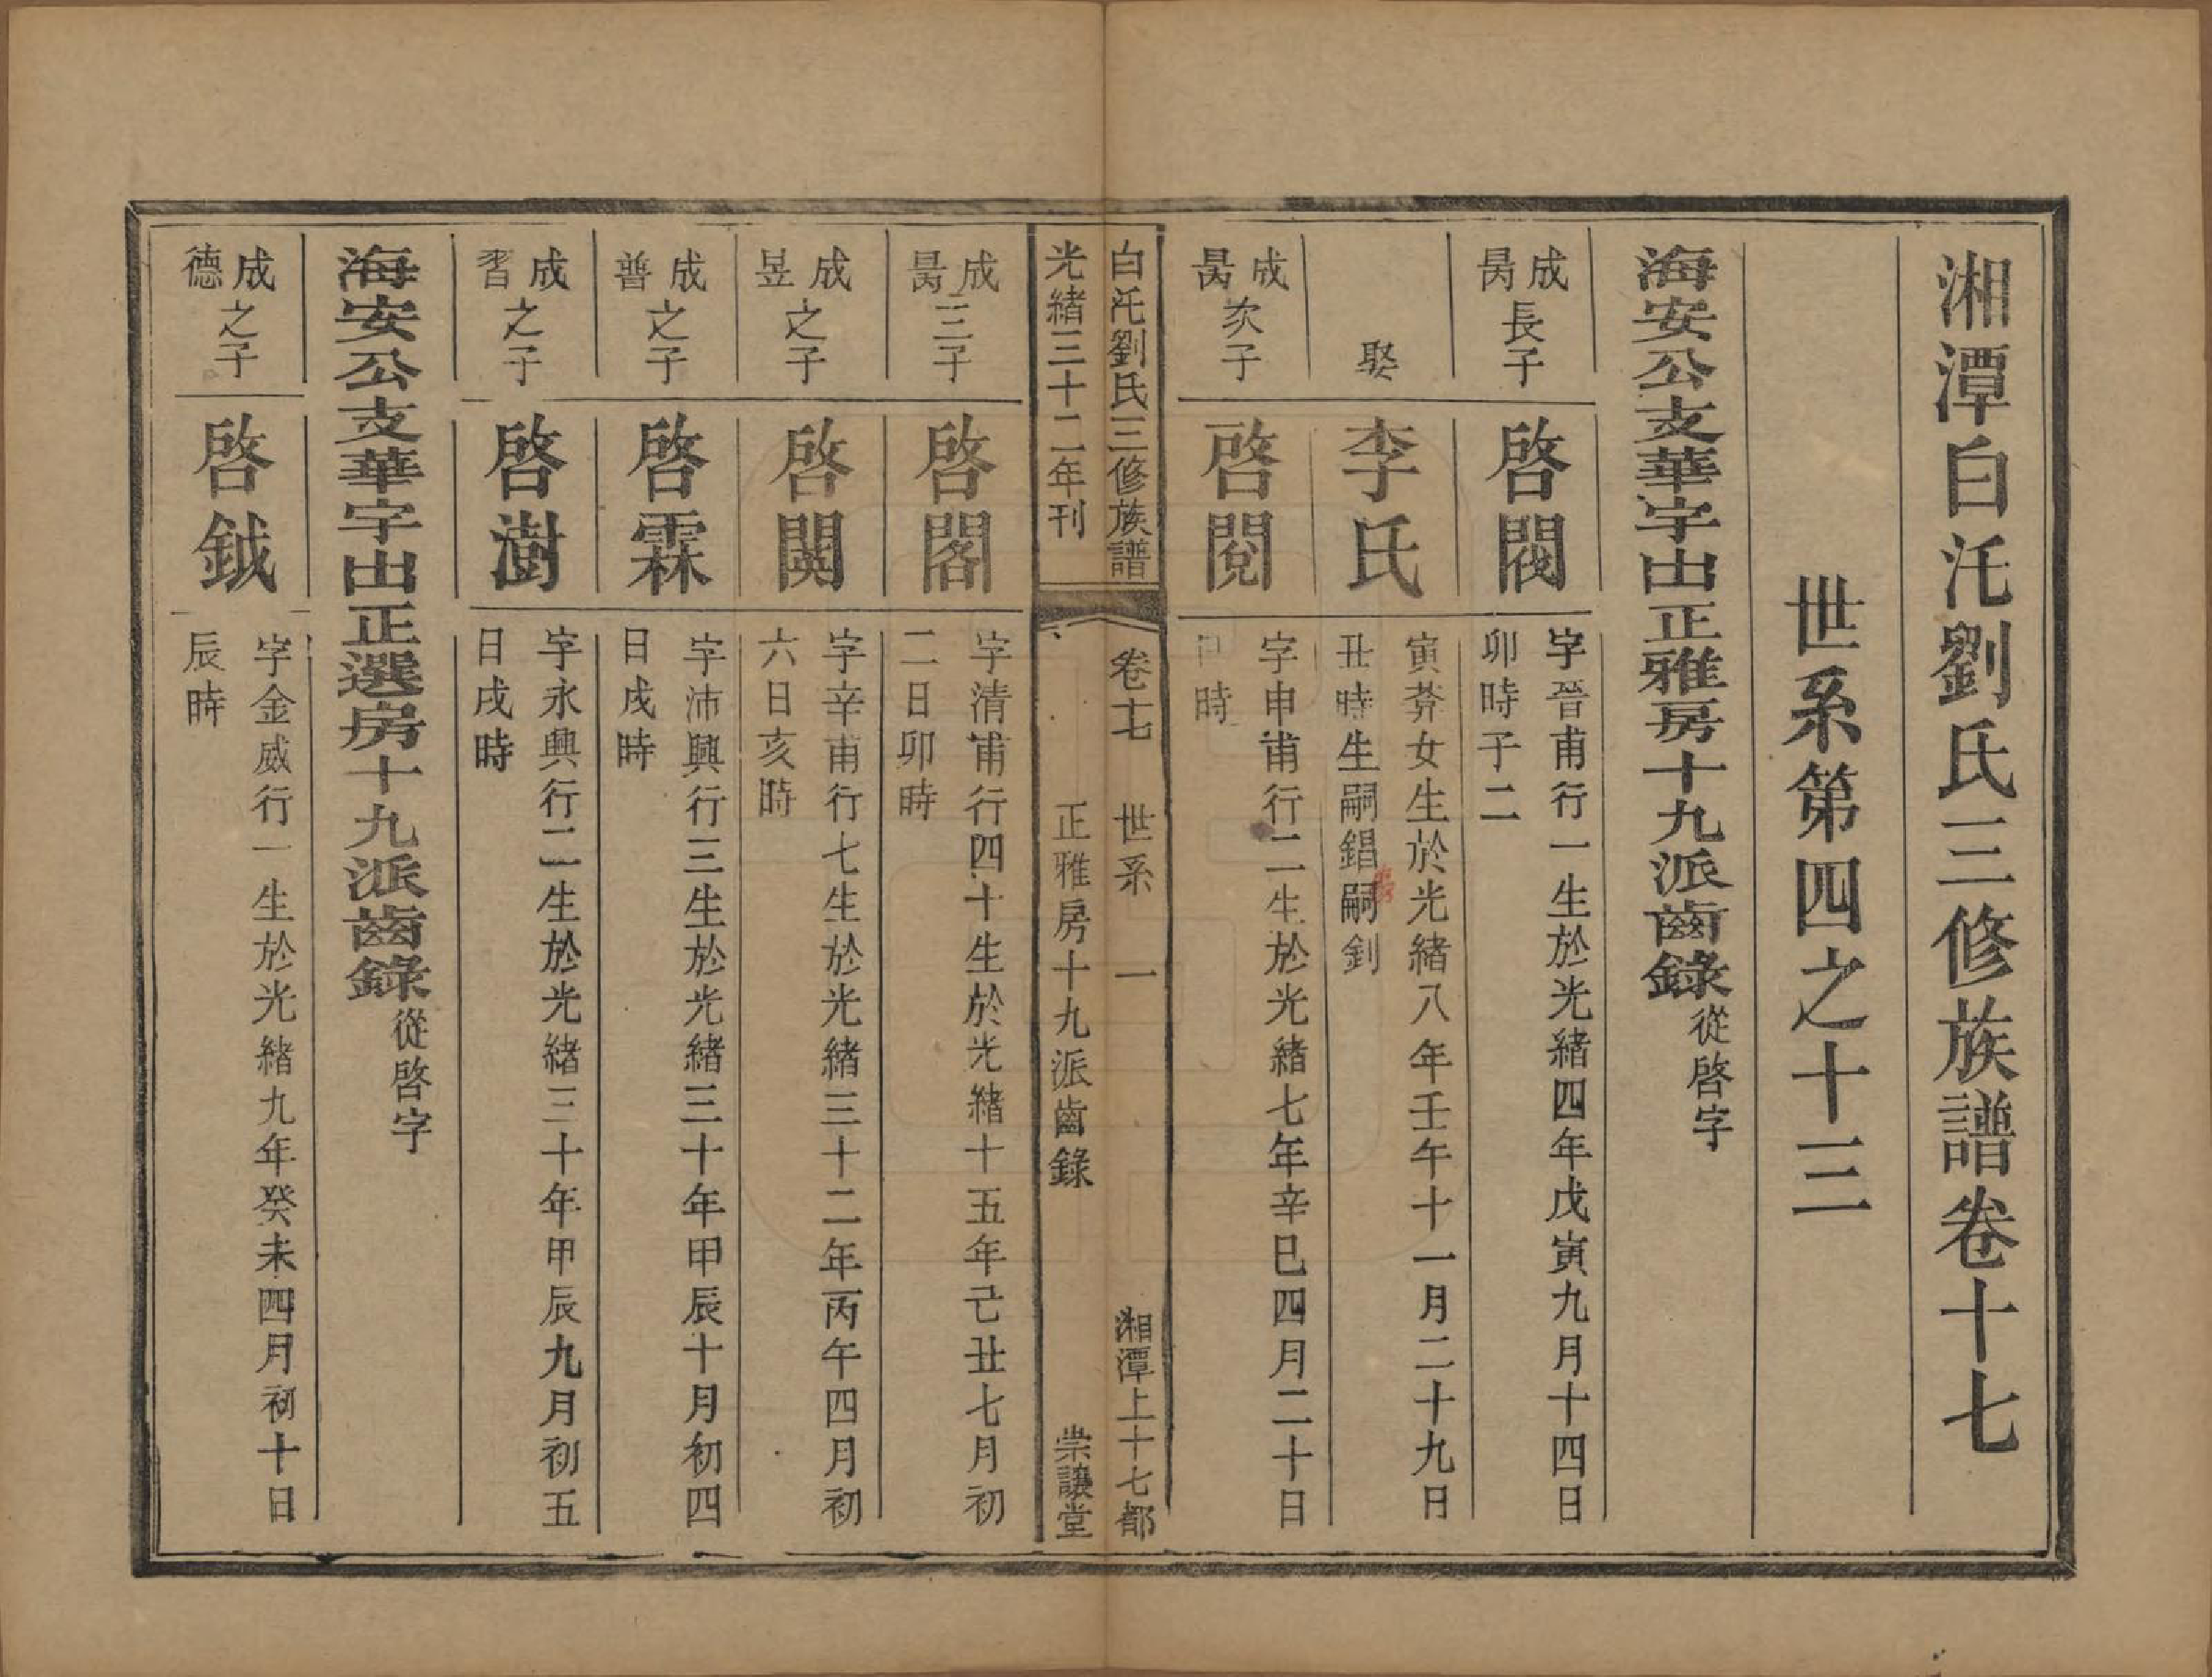 湘潭白汑劉氏三修族譜卷十七
世系第四之十三
海安公支華宇山正雅房十九派齒錄從啓字
成昺長子
啓閥
字晉甫行一生於光緒四年戊寅九月十四日
卯時子二
娶
李氏
寅莽女生於光緒八年壬午十一月二十九日
丑時生嗣錩嗣釗
成昺次子
啓閱
字申甫行二生於光緒七年辛巳四月二十日
時
白汑劉氏三修族譜
卷十七
世系
一
湘潭上十七都
光緒三十二年刊
正雅房十九派齒錄
崇讓堂
成昺三子
啓閣
字清甫行四十生於光緒十五年己丑七月初
二日卯時
成昱之子
啓闕
字辛甫行七生於光緒三十二年丙午四月初
六日亥時
成普之子
啓霖
字沛興行三生於光緒三十年甲辰十月初四
日戌時
成習之子
啓澍
字永興行二生於光緒三十年甲辰九月初五
日戌時
海安公支華宇山正選房十九派齒錄從啓字
成德之子
啓鉞
字金威行一生於光緒九年癸未四月初十日
辰時